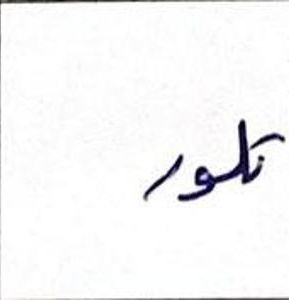 تلور